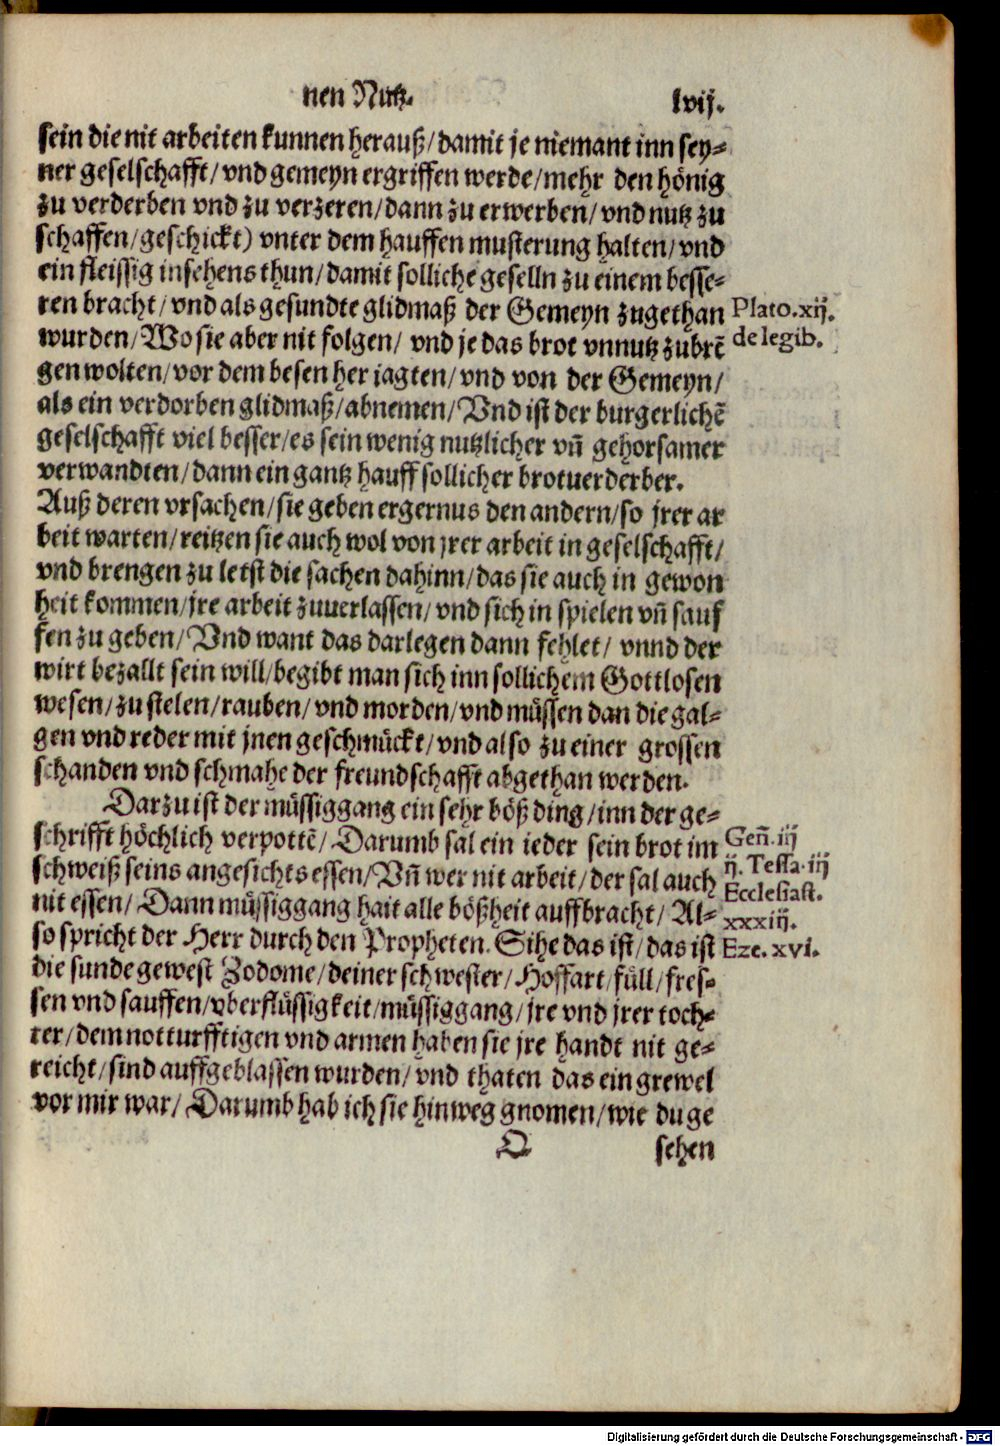 nen Nutz.
lvij.
sein die nit arbeiten kunnen herauß/damit je niemant inn sey⸗
ner geselschafft/vnd gemeyn ergriffen werde/mehr den hönig
zu verderben vnd zu verzeren/dann zu erwerben/vnd nutz zu
schaffen/geschickt) vnter dem hauffen musterung halten/vnd
ein fleissig insehens thun/damit solliche geselln zu einem besse⸗
ren bracht/vnd als gesundte glidmaß der Gemeyn zugethan
wurden/Wo sie aber nit folgen/ vnd je das brot vnnutz zubrē
gen wolten/vor dem besen her jagten/vnd von der Gemeyn/
als ein verdorben glidmaß/abnemen/Vnd ist der burgerlichē
geselschafft viel besser/es sein wenig nutzlicher vn̄ gehorsamer
verwandten/dann ein gantz hauff sollicher brotuerderber.
Auß deren vrsachen/sie geben ergernus den andern/so jrer ar
beit warten/reitzen sie auch wol von jrer arbeit in geselschafft/
vnd brengen zu letst die sachen dahinn/das sie auch in gewon
heit kommen/jre arbeit zuuerlassen/vnd sich in spielen vn̄ sauf
fen zu geben/Vnd want das darlegen dann fehlet/ vnnd der
wirt bezallt sein will/begibt man sich inn sollichem Gottlosen
wesen/zu stelen/rauben/vnd morden/vnd müssen dan die gal⸗
gen vnd reder mit jnen geschmückt/vnd also zu einer grossen
schanden vnd schmahe der freundschafft abgethan werden.
Darzu ist der müssiggang ein sehr böß ding/inn der ge⸗
schrifft höchlich verpottē/Darumb sal ein jeder sein brot im
schweiß seins angesichts essen/Vn̄ wer nit arbeit/der sal auch
nit essen/ Dann müssiggang hait alle bößheit auffbracht/Al⸗
so spricht der Herr durch den Propheten. Sihe das ist/das ist
die sunde gewest Zodome/deiner schwester/Hoffart/füll/fres⸗
sen vnd sauffen/vberflüssigkeit/müssiggang/jre vnd jrer toch⸗
ter/dem notturfftigen vnd armen haben sie jre handt nit ge⸗
reicht/sind auffgeblassen wurden/vnd thaten das ein grewel
vor mir war/Darumb hab ich sie hinweg gnomen/wie du ge
O
sehen
Plato.xij.
de legib.
Gen̄.iij
ij. Tessa.iij
Ecclesiast.
xxxiij.
Eze.xvi.
Digitalisierung gefördert durch die Deutsche Forschungsgemeinschaft - DFG